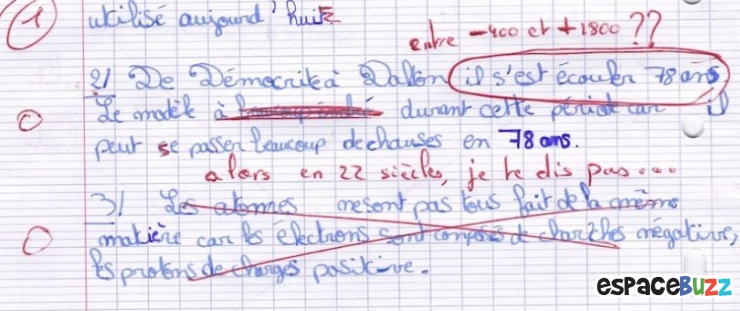 1 utilisé aujourd'huit
entre -400 et +1800 ??
2/ De Démocrite à Dalton il s'est écouler 78 ans
0 Le modèle à durant cette période car il
peut se passer beaucoup de chauses en 78 ans.
alors en 22 siècles, je te dis pas...
3/ Les atomes mesont pas tous fait de la même
0 matière car les électrons sont composés de charches négative,
les protons de charges positive.
espaceBuzz